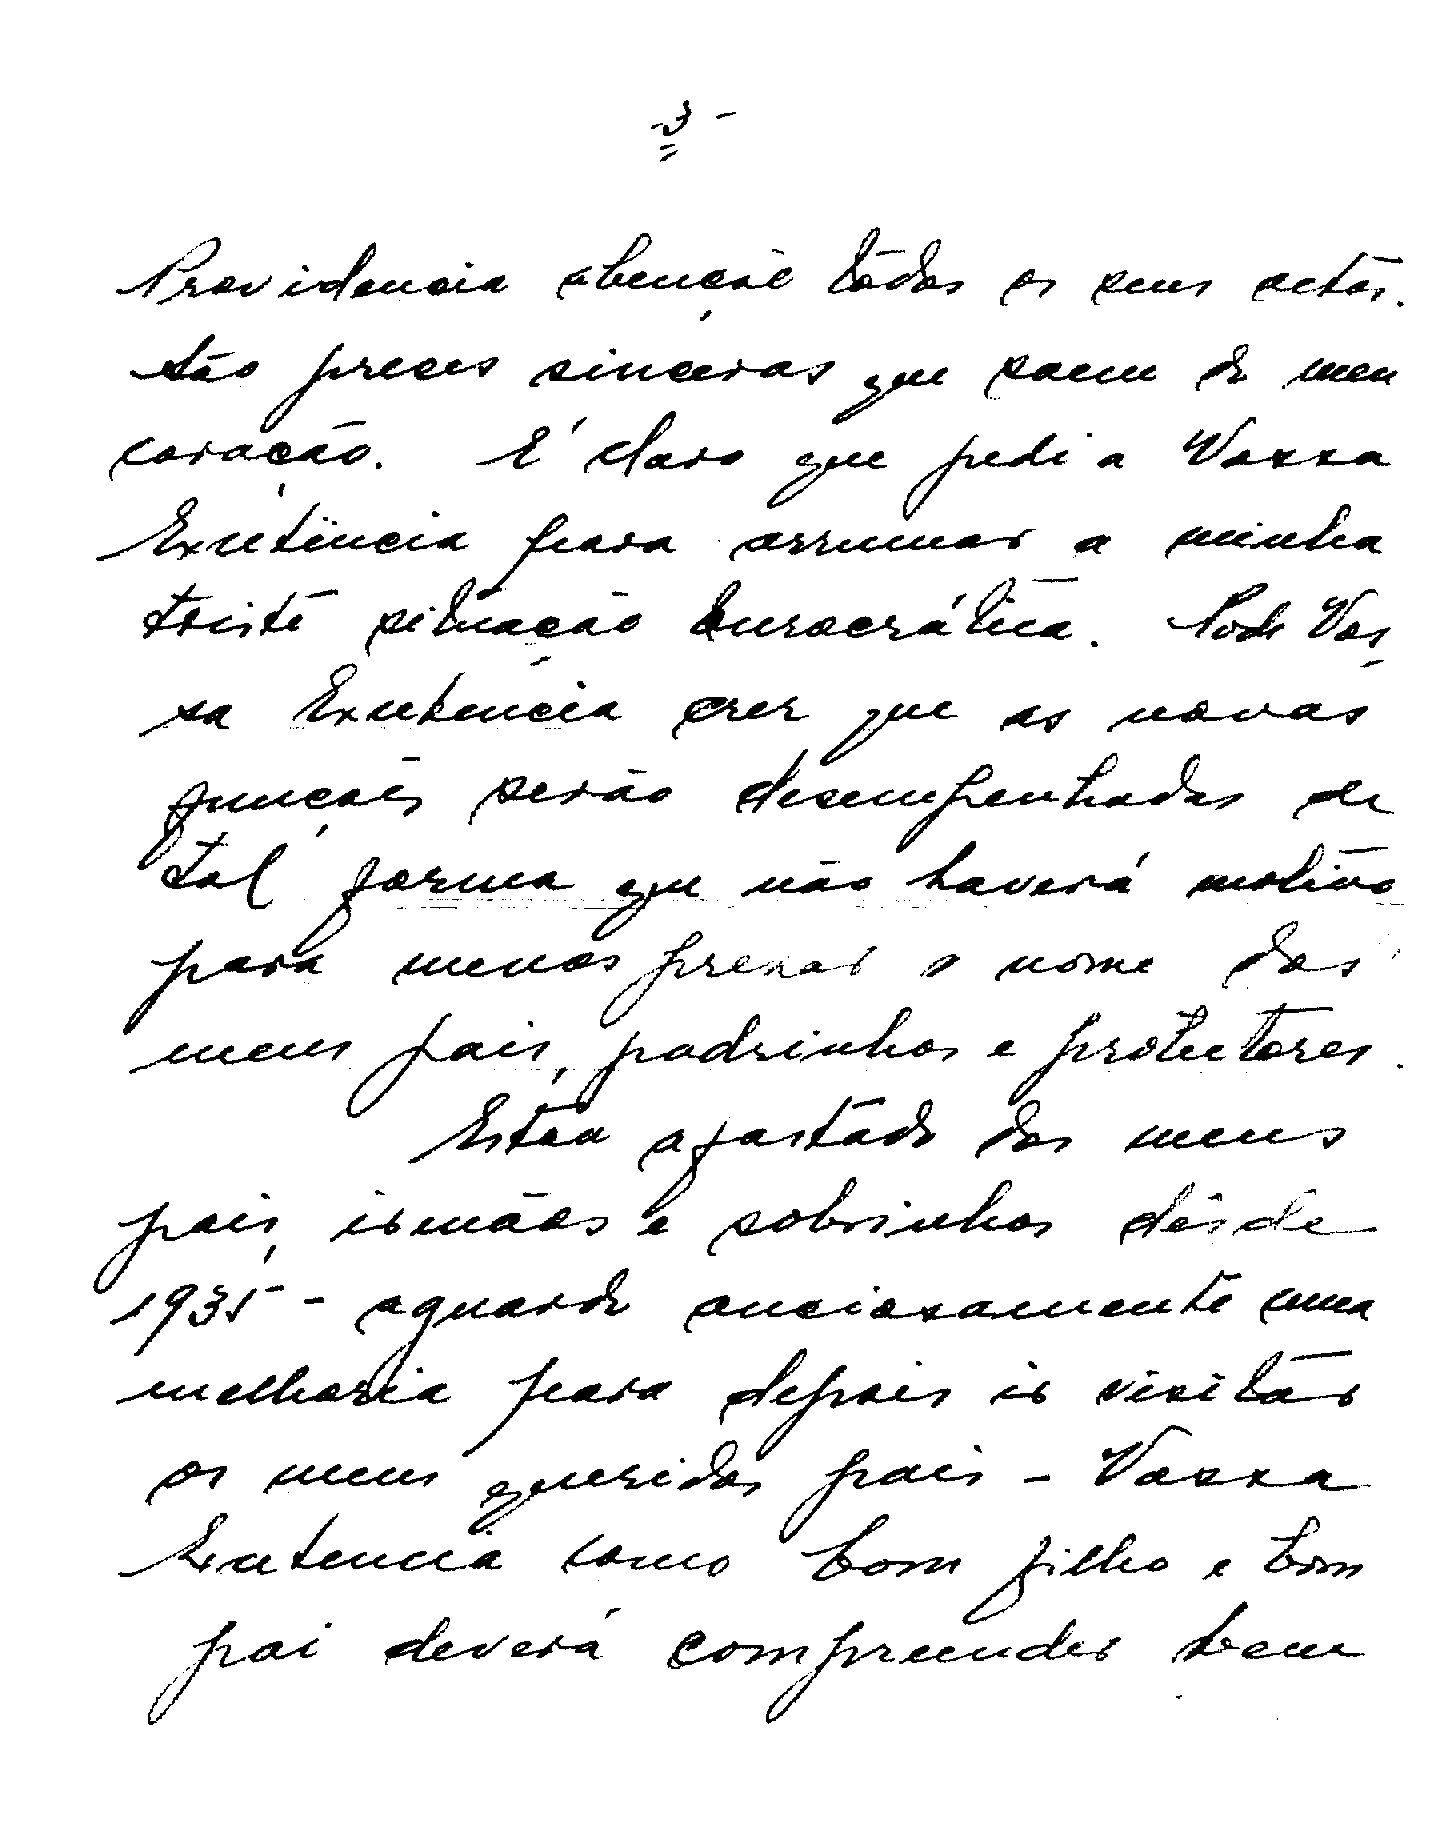 - 3 -
Providencia abençoe todos os seus actos.
São preces sinceras que saem do meu
coração. E' claro que pedi a Vossa
Excelência para arrumar a minha
triste situação burocrática. Pode Vos-
sa Excelencia crer que as novas
funções serão desempenhadas de
tal forma que não haverá motivo
para menosprezar o nome dos
meus pais, padrinhos e protectores.
Estou afastado dos meus
pais, irmãos e sobrinhos dêsde
1935 - aguardo anciosamente uma
melhoria para depois ir visitar
os meus queridos pais - Vossa
Excelencia como bom filho e bom
pai deverá compreender bem